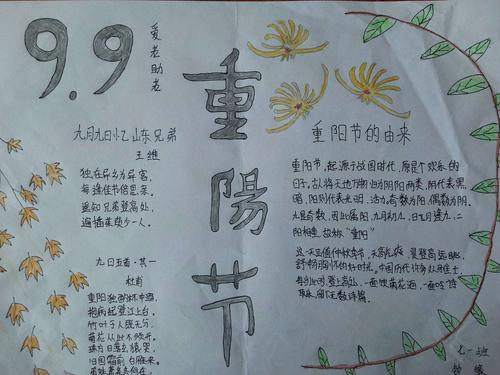 9.9
爱老助老
重陽节
九月九日忆山东兄弟
王维
独在异乡为异客，
每逢佳节倍思亲。
遥知兄弟登高处，
遍插茱萸少一人。
九日五首·其一
杜甫
重阳独酌杯中酒，
抱病起登江上台。
竹叶于人既无分，
菊花从此不须开。
殊方日落玄猿哭，
旧国霜前白雁来。
重阳节的由来
重阳节，起源于战国时代，原是个欢乐的
日子。古人将天地万物归为阴阳两类，阴代表黑
暗，阳则代表光明、活力。奇数为阳，偶数为阴。
九是奇数，因此属阳，九月初九，日月逢九，二
阳相重，故称"重阳"
这一天正值仲秋季节，天高气爽，是登高远眺，
舒畅胸怀的好时候。中国历代许多文人雅士，
每到此时，登上高处，一面饮菊花酒，一面吟诗
取乐，留下无数诗篇。
七一班